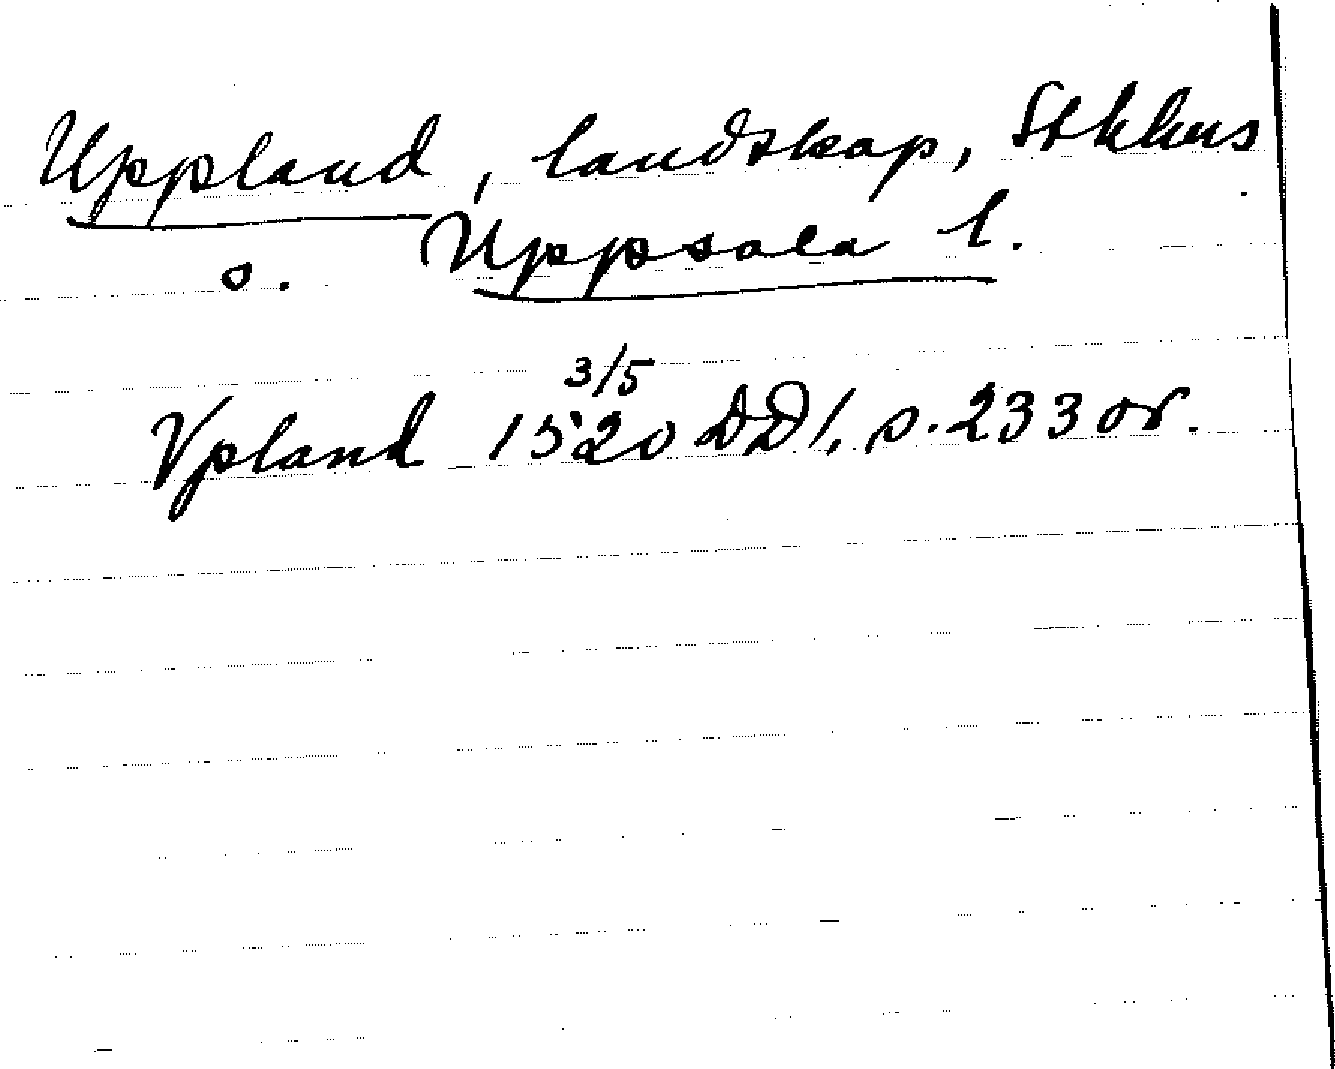 Uppland, landskap, Sthlms
o. Uppsala l.
Vpland 1520 3/5 DD1, s. 233 or.